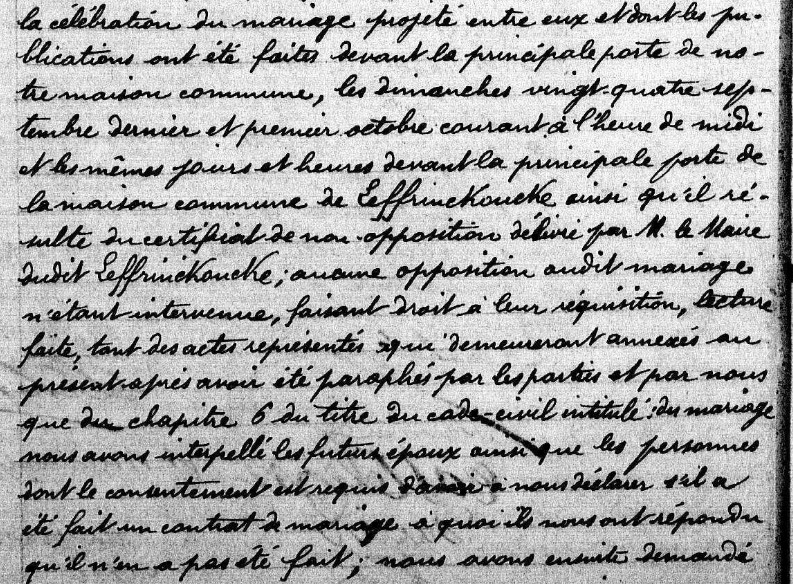 la célébration du mariage projeté entre eux et dont les pu-
blications ont été faites devant la principale porte de no-
tre maison commune, les dimanches vingt-quatre sep-
tembre dernier et premier octobre courant à l'heure de midi
et les mêmes jours et heures devant la principale porte de
la maison commune de Leffrinckoucke ainsi qu'il ré-
sulte du certificat de non-opposition délivré par M. le Maire
dudit Leffrinckoucke; aucune opposition audit mariage
n'étant intervenue, faisant droit à leur réquisition, lecture
faite, tant des actes représentés qui demeureront annexés au
présent après avoir été paraphés par les parties et par nous
que du chapitre 6 du titre du code-civil intitulé: du mariage
nous avons interpellé les futurs époux ainsi que les personnes
dont le consentement est requis à nous déclarer s'il a
été fait un contrat de mariage à quoi ils nous ont répondu
qu'il n'en a pas été fait; nous avons ensuite demandé